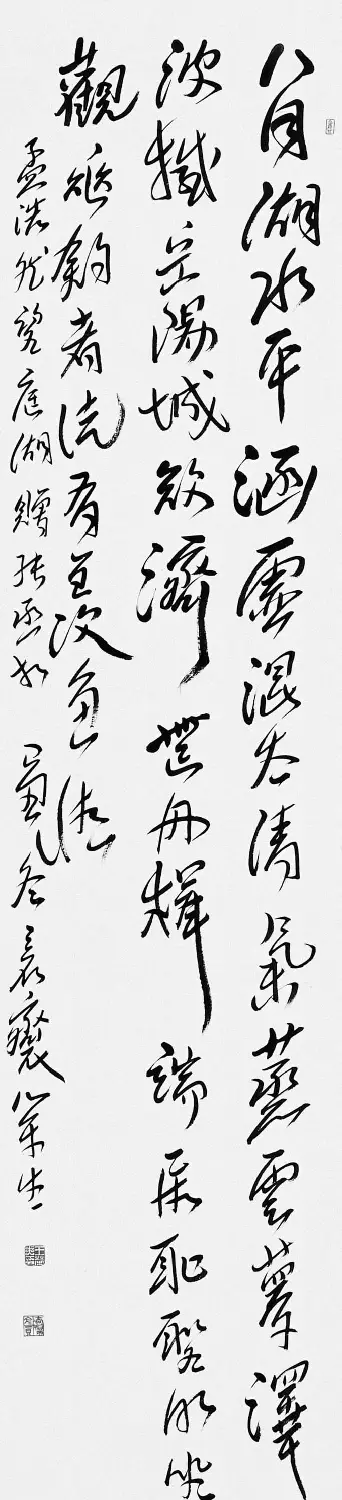 八月湖水平涵虛混太清氣蒸雲夢澤
波撼岳陽城欲濟無舟楫端居恥聖明坐
觀垂釣者徒有羨魚情
孟浩然望庭湖贈張丞相 冬